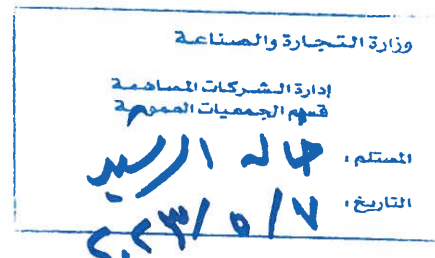 وزارة التجارة والصناعة
إدارة الشركات المساهمة
قسم الجمعيات العمومية
المستلم : خالد الرسيد
التاريخ : ٧/٥/٢٠٢٣